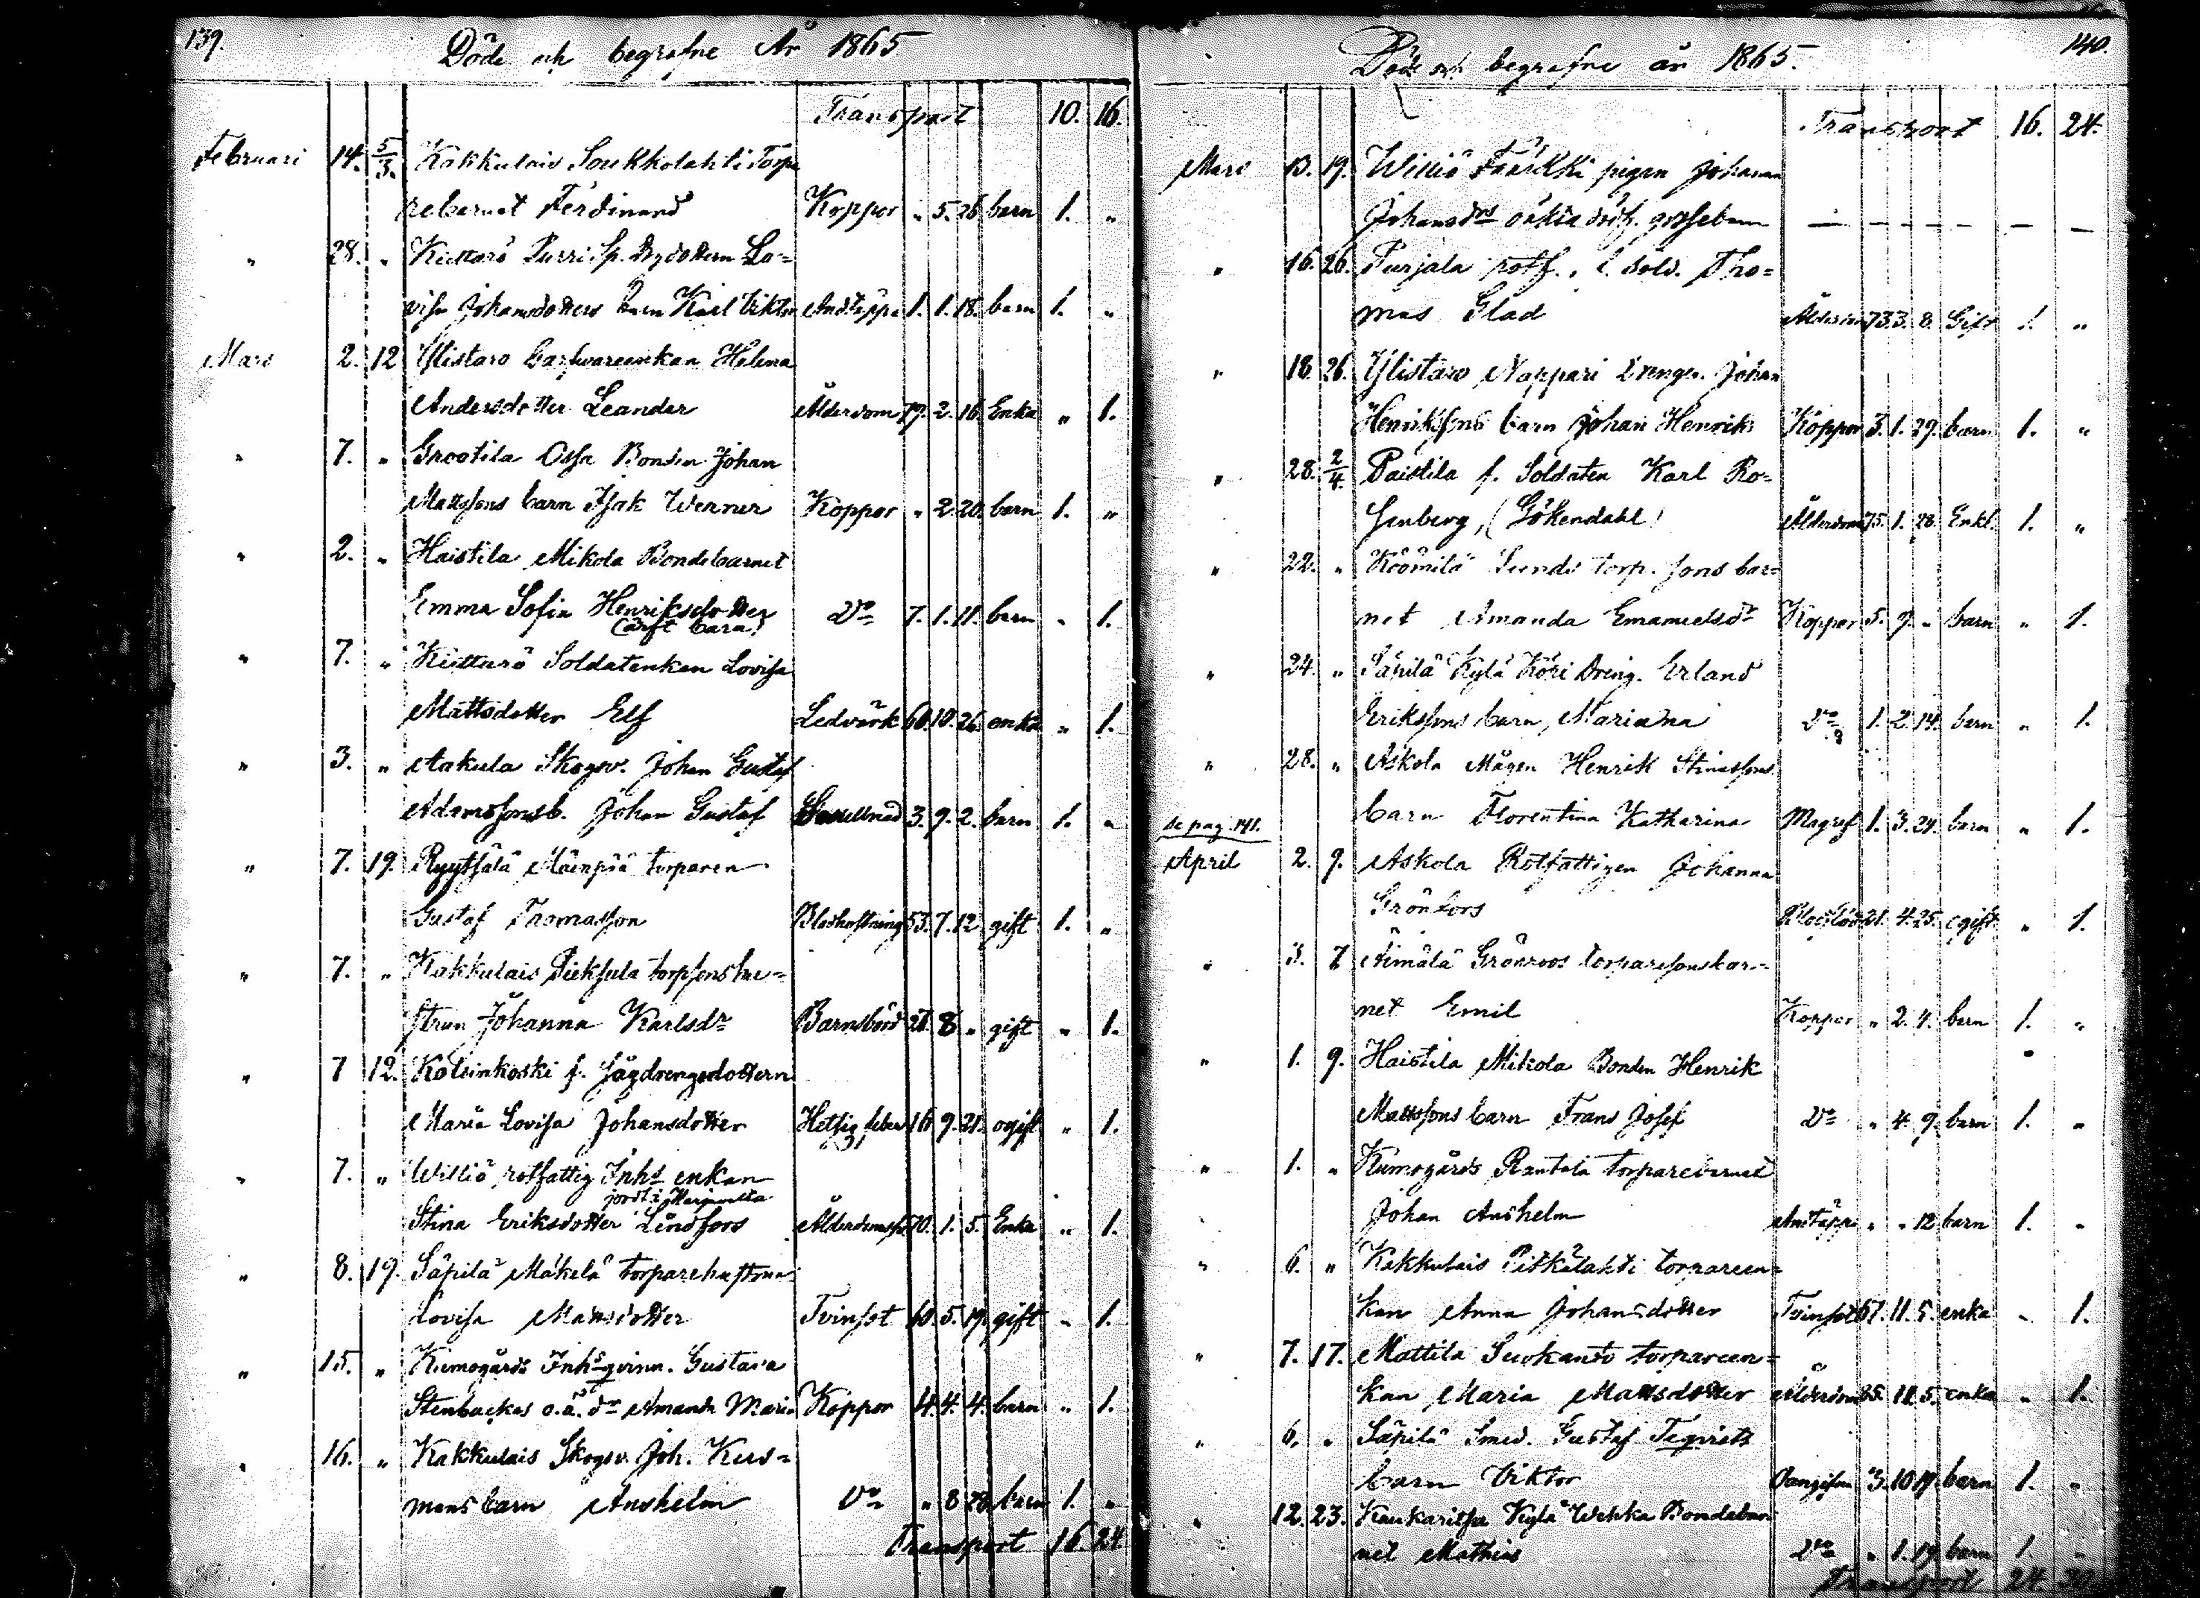 139.
Döde och begrafne År 1865
Transport 10. 16.
Februari 14. 5/3. Kakkulais Soukkolahti Torpa
rebarnet Ferdinand Koppor " 5. 26 barn 1. "
" 28. " Kiettarö Purri Sp. Bydottern Lo=
visa Johansdotters barn Karl Viktor Andtäppa 1. 1. 18. barn 1. "
Mars 2. 12 Ylistaro enkan Helena
Andersdotter Leander Ålderdom 79. 2. 16 Enka " 1.
" 7. " Grootila Ossa Bonden Johan
Mattssons barn Isak Werner Koppor " 2. 20. barn 1. "
" 2. " Haistila Mikola Bondebarnet
Emma Sofia Henriksdotter Do 7. 1. 11. barn " 1.
" 7. " Kiettarö Soldatenkan Lovisa
Mattsdotter Elf Ledvärk 60. 10. 26. enka " 1.
" 3. " Aakula Skogsv. Johan Gustaf
Adamssons b. Johan Gustaf 3. 9. 2. barn 1. "
" 7. 19. Ryytsälä Mäenpää torparen
Gustaf Thomasson Blodhostning 53. 7. 12 gift 1. "
" 7. " Kakkulais Pieksula torpsons hu=
strun Johanna Karlsdr Barnsbörd 28 8 " gift " 1.
" 7 12. Kolsinkoski f. Sågdrengsdottern
Maria Lovisa Johansdotter Hetsig feber 16 9. 21. ogift " 1.
" 7. " Williö rotfattig Inhs enkan
Stina Eriksdotter Lindfors 70. 1. 5. Enka " 1.
" 8. 19. Säpilä Mäkelä torparehustrun
Lovisa Mattsdotter Tvinsot 60. 5. 19. gift " 1.
" 15. " Kumogårds Inhsqvinn. Gustava
Stenbackas o.ä. dr Amanda Maria Koppor 4. 4. 4. barn " 1.
" 16. " Kakkulais Skogsv. Joh. Kus=
mans barn Anshelm Do " 8 28 barn 1. "
Transport 16. 24
140.
Döde och begrafne år 1865.
Transport 16. 24.
Mars 13. 19. Williö Faarkki pigan Johanna
Johansdrs oäkta dödf. gossebarn — — — — — — —
" 16. 26. Purjala rotf. f. sold. Tho=
mas Glad Ålderdom 73. 3. 8. Gift 1. "
" 18. 26. Ylistaro Nappari drengen Johan
Henrikssons barn Johan Henrik Koppor 3. 1. 29. barn 1. "
" 28. 2/4. Paistila f. Soldaten Karl Ro=
senberg, (Gökendahl) Ålderdom 75. 1. 28. Enkl. 1. "
" 22. " Köömilä Sunds torp. sons bar=
net Amanda Emanuelsdr Koppor 5. 9. " barn " 1.
" 24. " Säpilä Kylä Köri Dreng. Erland
Erikssons barn, Mariana Do 1. 2. 14. barn " 1.
" 28. " Askola Mågen Henrik Stinassons
barn Florentina Katharina Magref 1. 3. 24. barn " 1.
se pag. 141.
April 2. 9. Askola Rotfattigen Johanna
Grönfors 21. 4. 25. ogift " 1.
" 3. 7 Äimälä Grönroos torparesonsbar=
net Emil Koppor " 2. 4. barn 1. "
" 1. 9. Haistila Mikola Bonden Henrik
Mattssons barn Frans Josef Do " 4 9 barn 1. "
" 1. " Kumogårds Rantala torparebarnet
Johan Anshelm Andtäppa " " 12 barn 1. "
" 6. " Kakkulais Pitkälahti torpareen=
kan Anna Johansdotter Tvinsot 67. 11. 5. enka " 1.
" 7. 17. Mattila Suokanto torpareen=
kan Maria Mattsdotter Ålderdom 85. 11. 5. enka " 1.
" 6. " Säpilä Smed. Gustaf Teqvists
barn Viktor 3. 10 19. barn 1. "
" 12. 23. Kaukaritsa Kylä Wehka Bondebar
net Mathias Do " 1. 19 barn 1. "
Transport 24 30